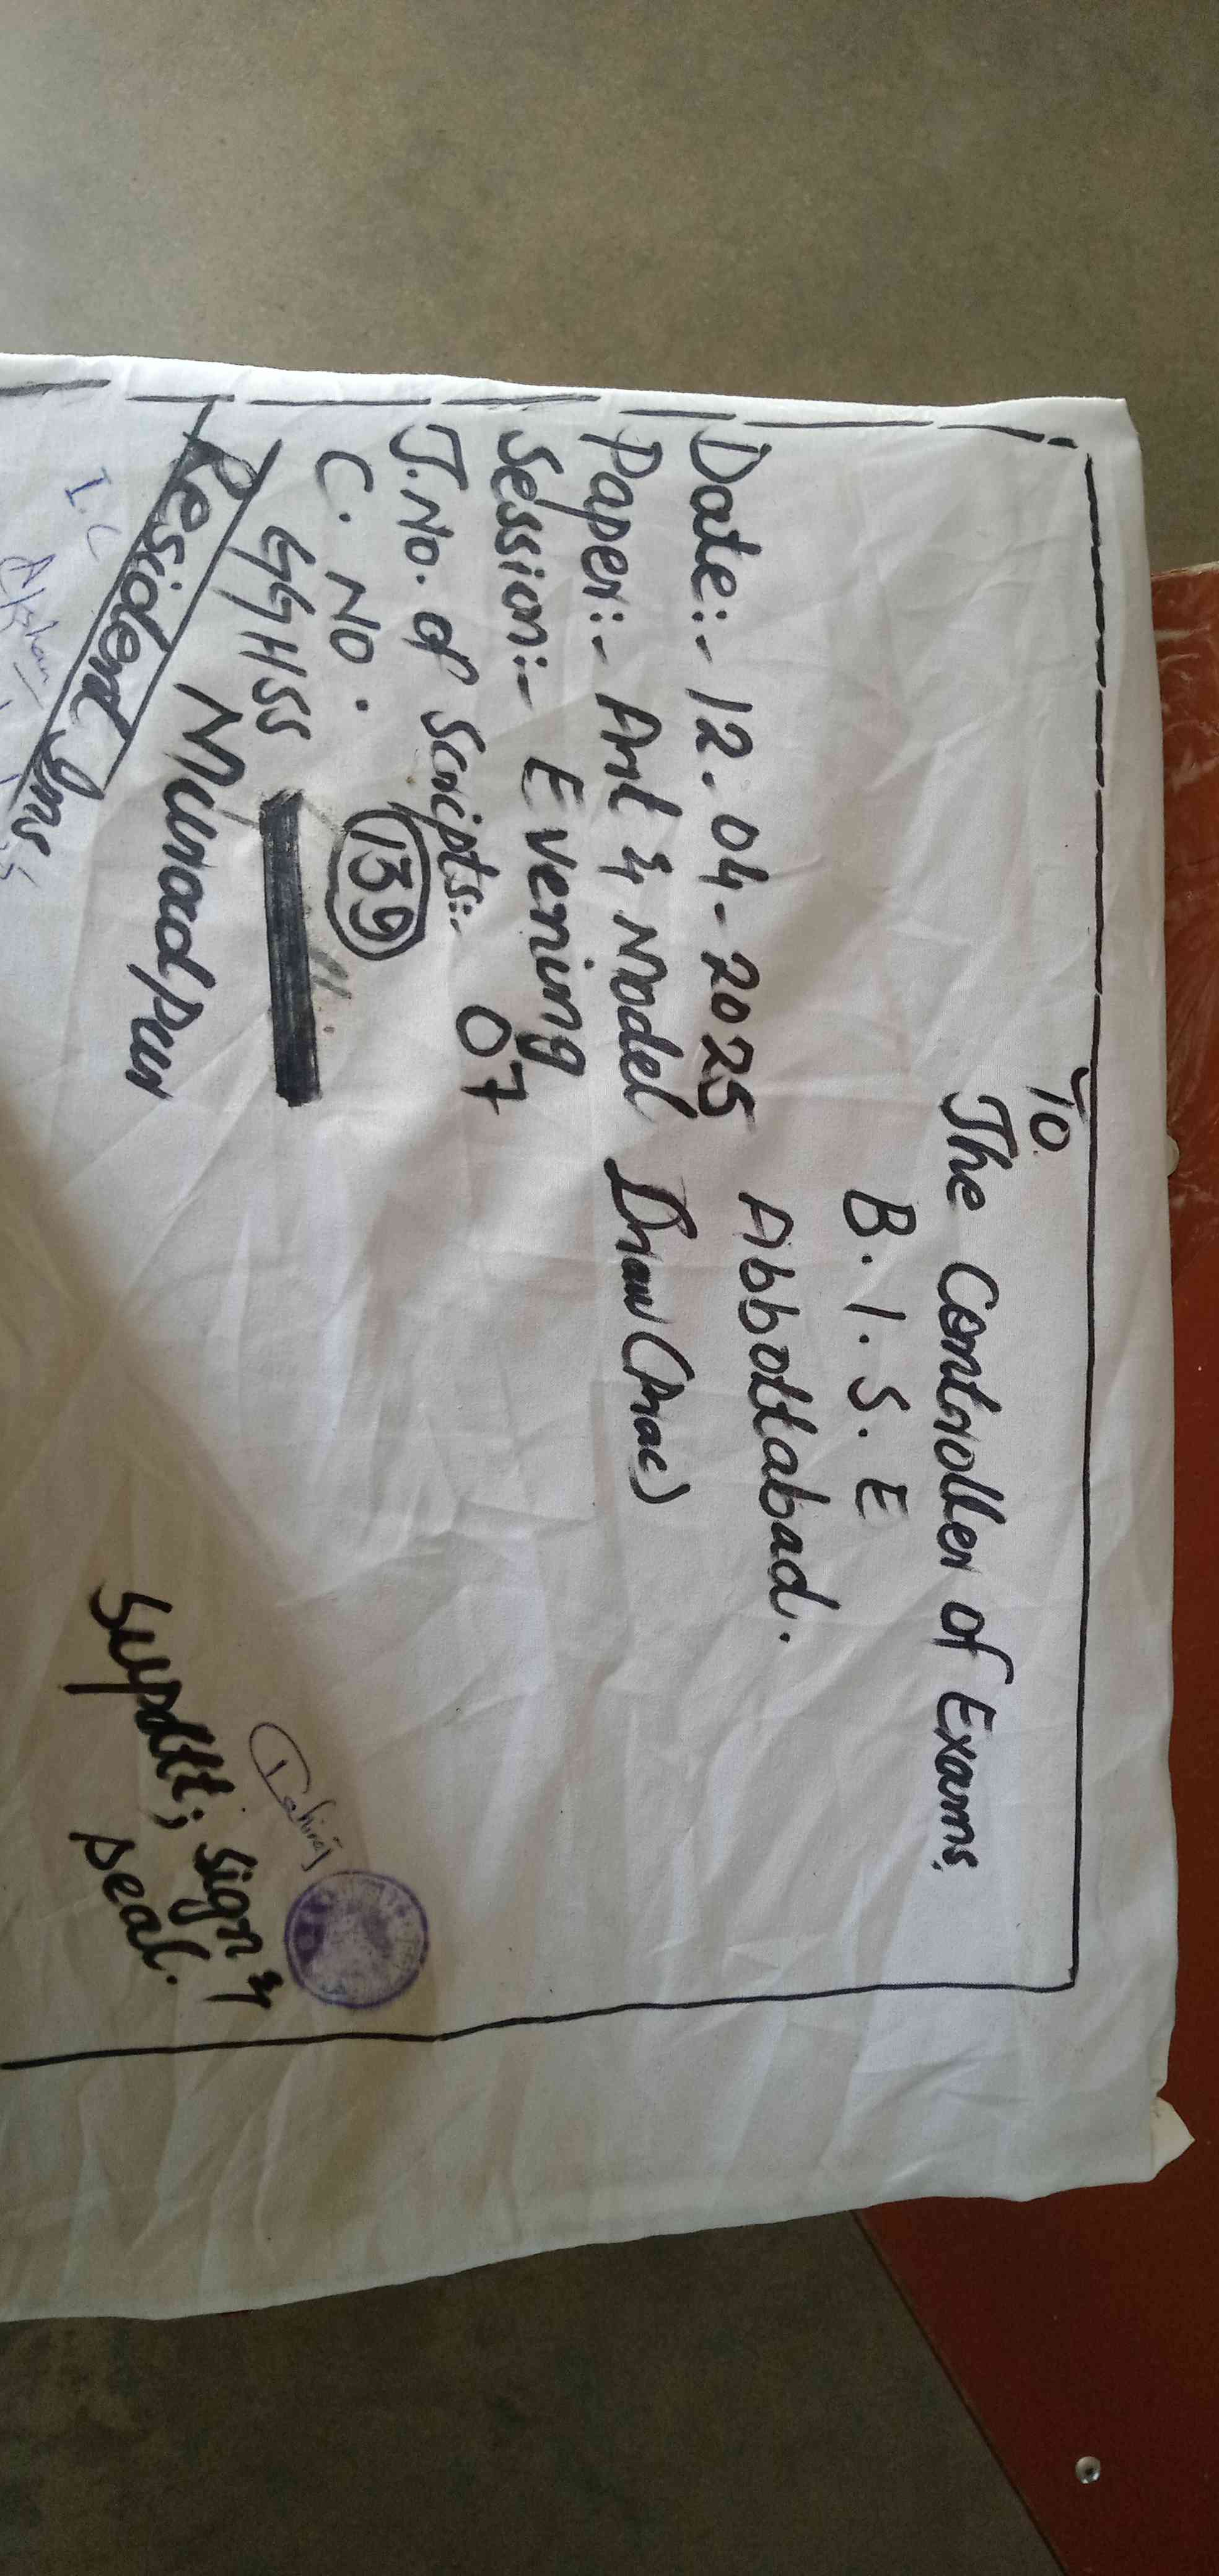 To.
The Controller of Exams.
B. I. S. E
Abbottabad.
Date:- 12.04-2025
Paper:- Art & Model Draw (Prac)
Session:- Evening
T.No. of Scripts:- 07
C. NO. 139
GGHSS
Muradpur
Resident Ins
Supdtt; Sign &
seal.